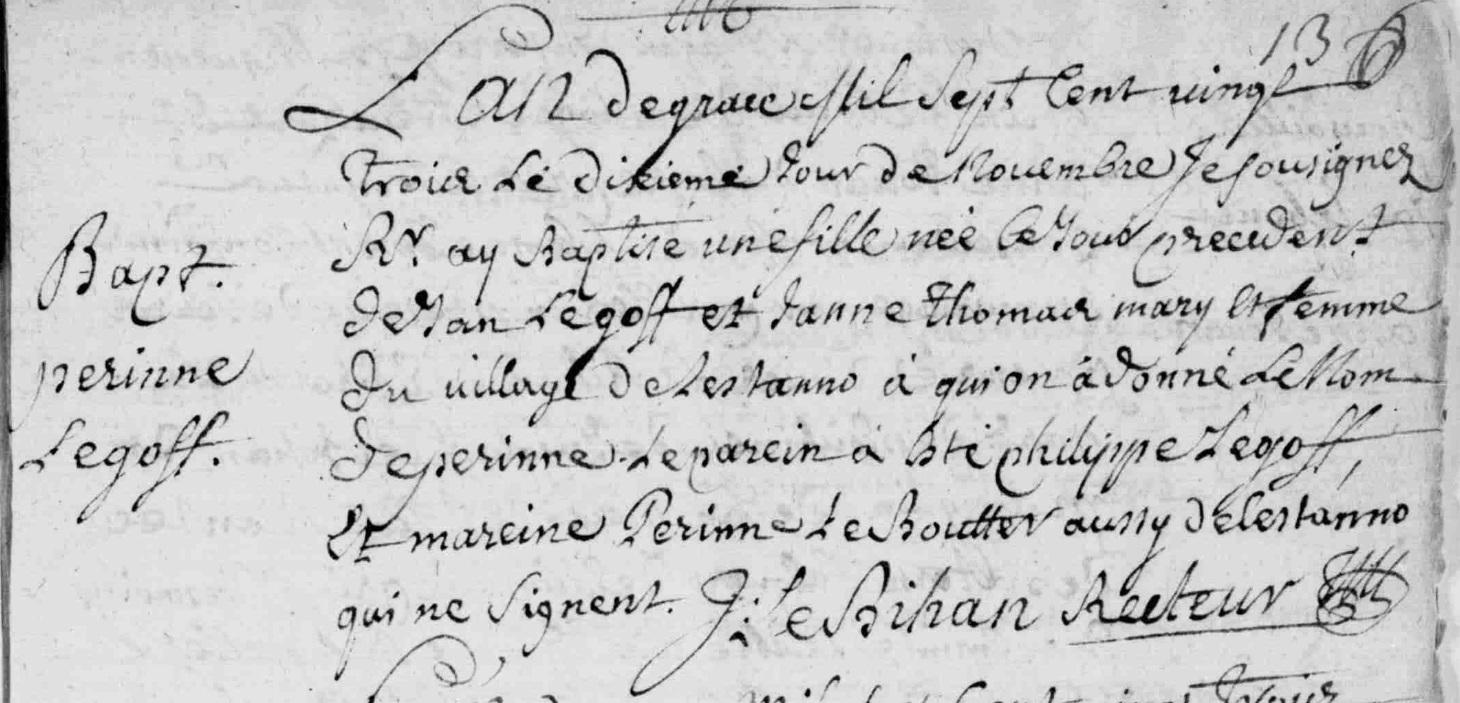 13
L'An de grace Mil Sept Cent vingt
trois Le dixieme Jour de Novembre Je sousignez
Rr. ay Baptisé une fille neé le Jour precedent
de Jan Legoff et Janne Thomas mary Et femme
Bapt.
perinne
Legoff.
du village de Lestanno á qui on á donné Le Nom
de perinne Le parein á Esté philippe Legoff,
Et mareine Perinne Le Boutter aussy de Lestanno
qui ne Signent. J: Le Bihan Recteur